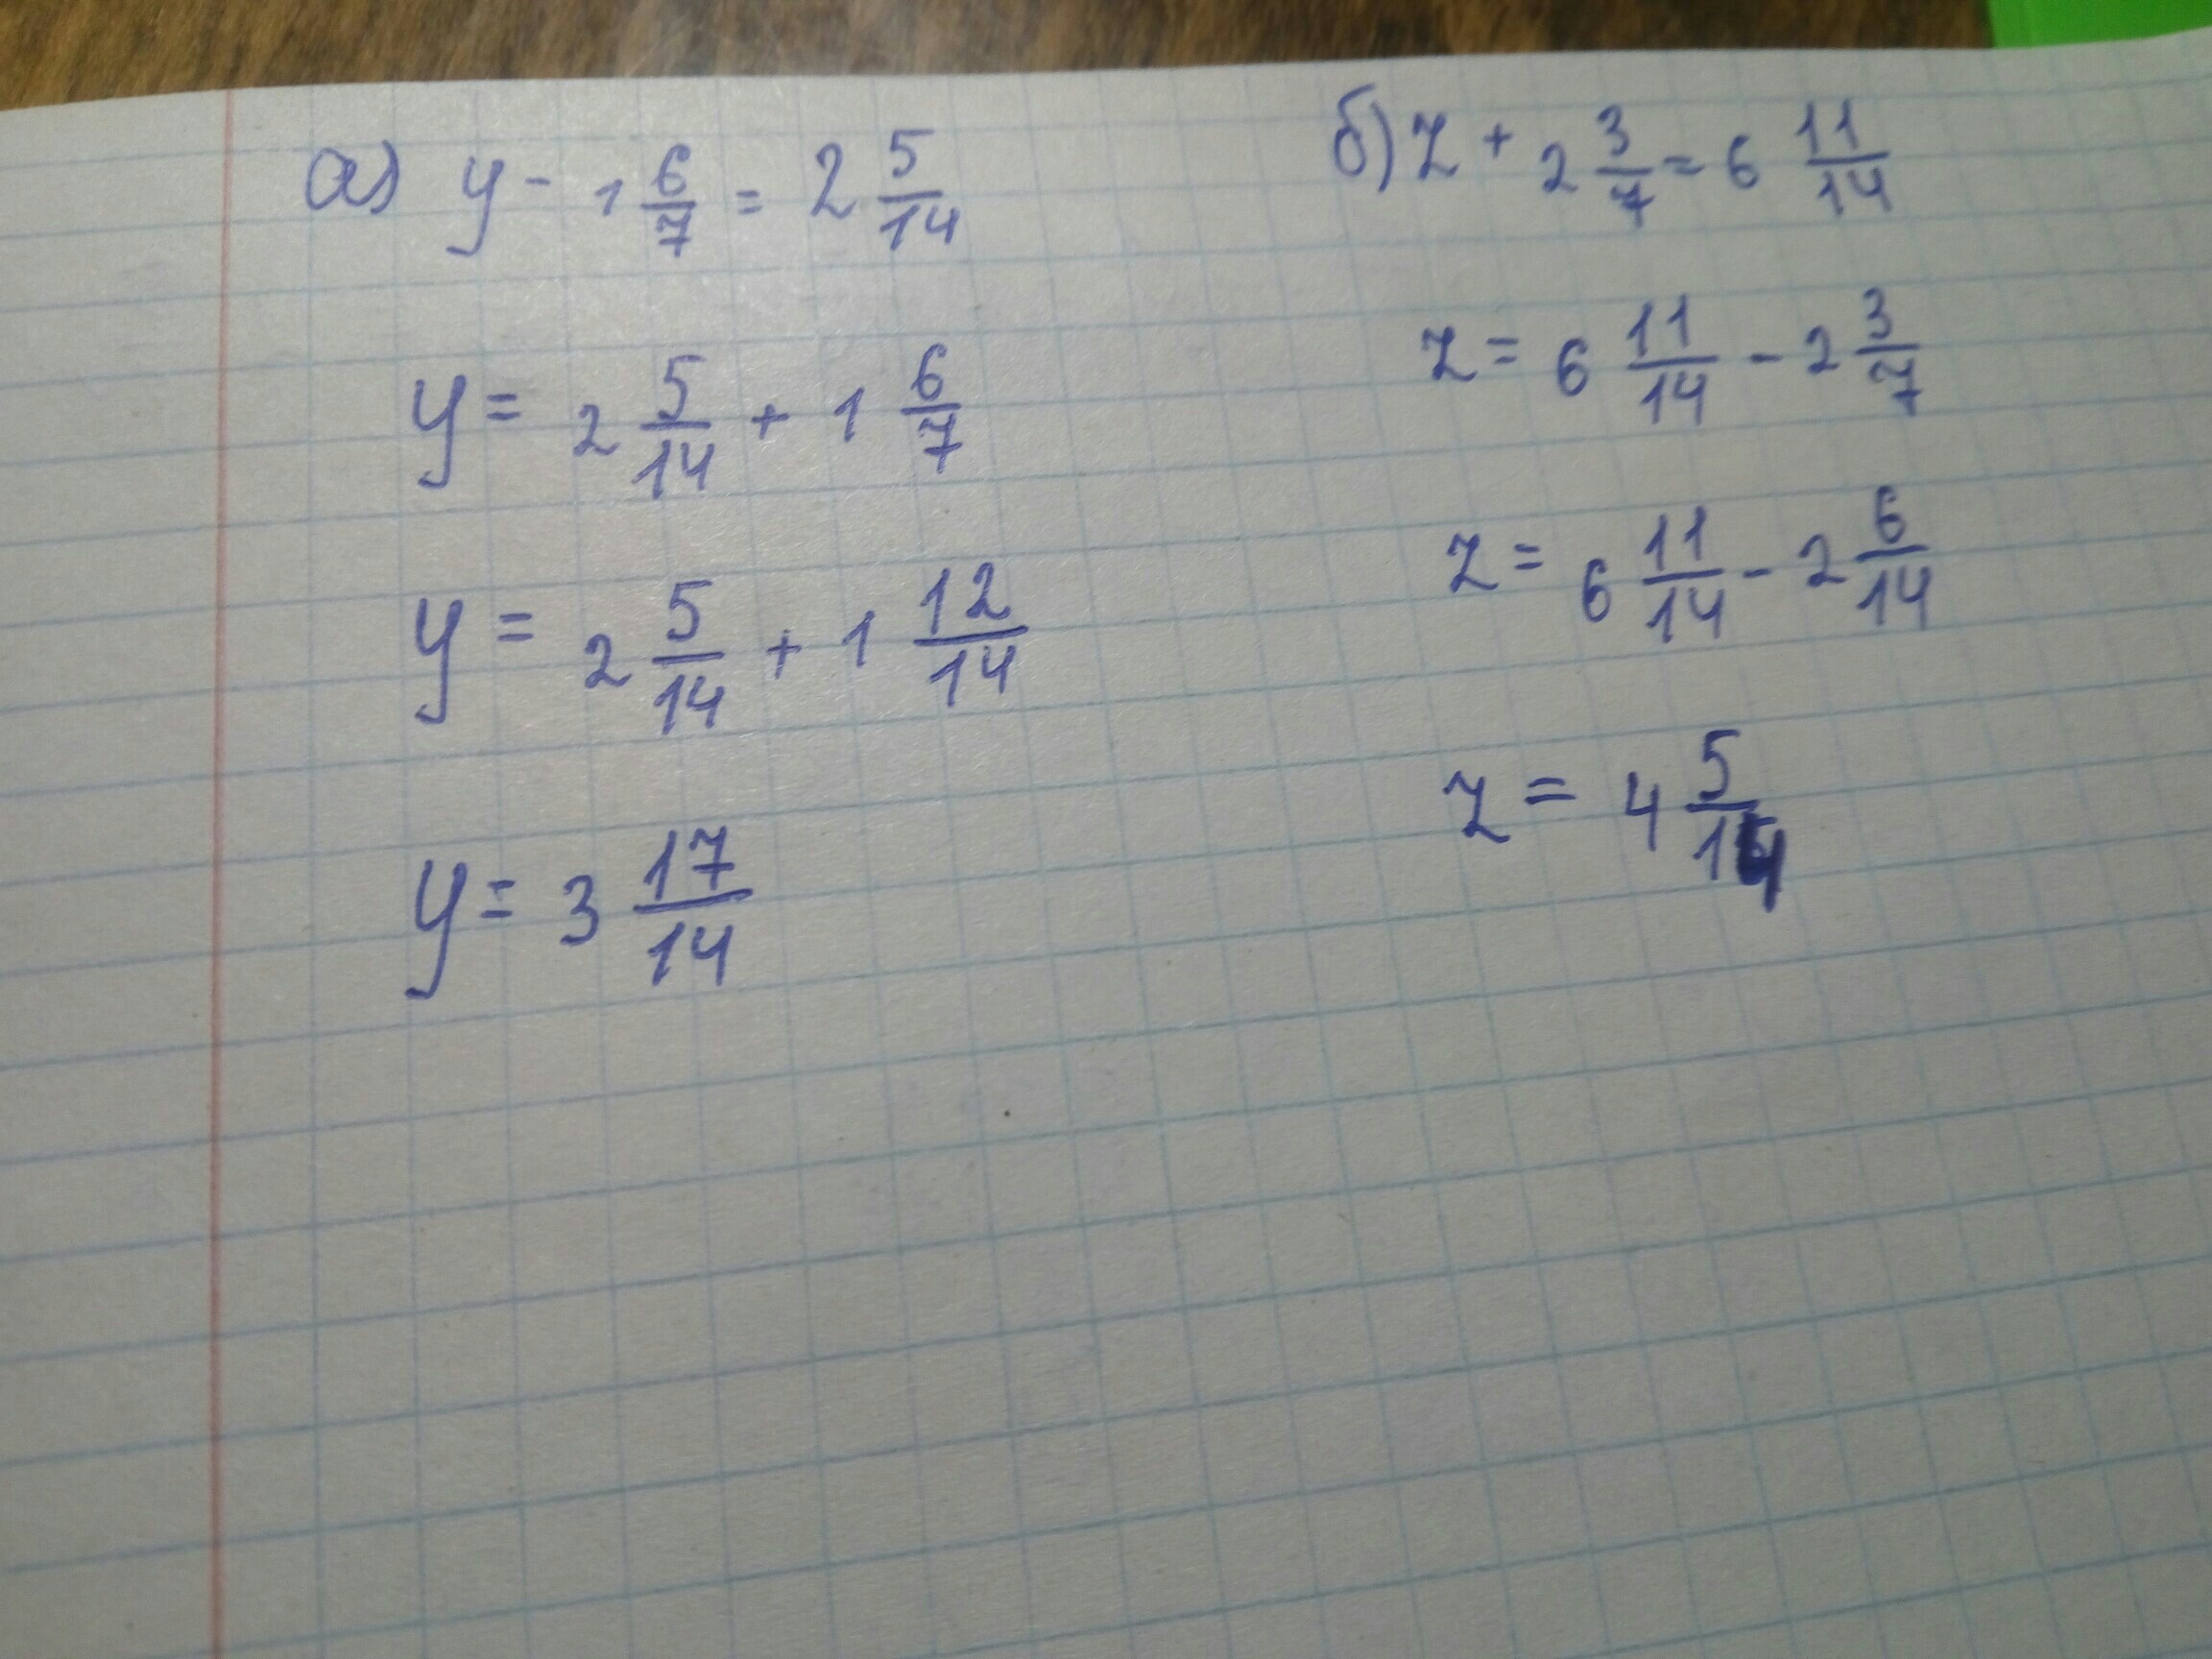 а) y - 1 6/7 = 2 5/14
y = 2 5/14 + 1 6/7
y = 2 5/14 + 1 12/14
y = 3 17/14
б) z + 2 3/7 = 6 11/14
z = 6 11/14 - 2 3/7
z = 6 11/14 - 2 6/14
z = 4 5/14